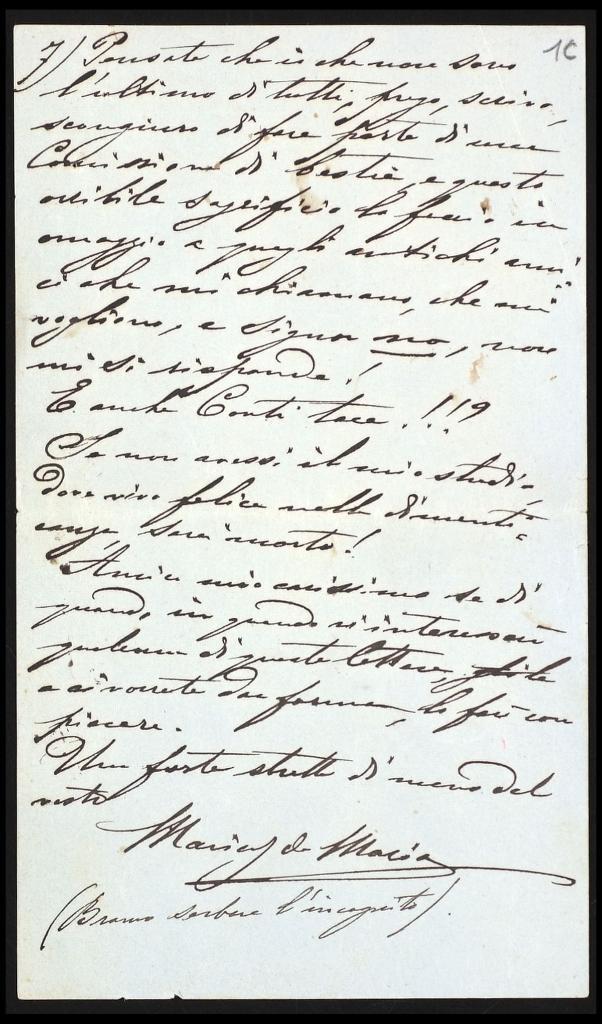 1C
7) Pensate che io che non sono
l'ultimo di tutti, prego, scrivo,
scongiuro di fare parte di una
Comissione di bestie, e questo
orribile sagrificio lo faccio in
omaggio a quegli antichi ami=
ci che mi chiamano, che mi
vogliono, e signor no, non
mi si risponde!
E anche Conti tace!!!?
Se non avessi il mio studio,
dove vivo felice nella dimenti=
canza, sarei morto!
Amico mio carissimo se di
quando, in quando vi interessan
qualcuna di queste lettere,
e ci vorrete dar forma, lo farò con
piacere.
Una forte stretta di mano dal
vostro
Mario de Maria
(Bramo serbare l'incognito).